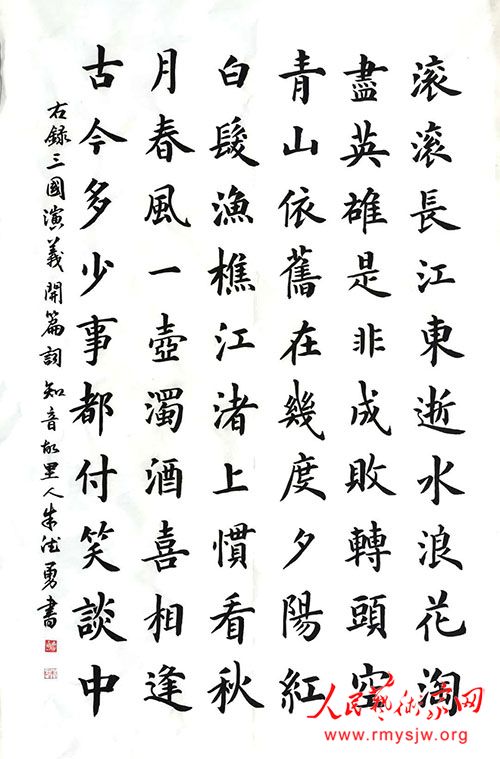 滚滚長江東逝水浪花淘
盡英雄是非成敗轉頭空
青山依舊在幾度夕陽紅
白髮漁樵江渚上慣看秋
月春風一壺濁酒喜相逢
古今多少事都付笑談中
右録三國演義開篇詞 知音故里人朱勇書
人民藝術家网
www.rmysjw.org